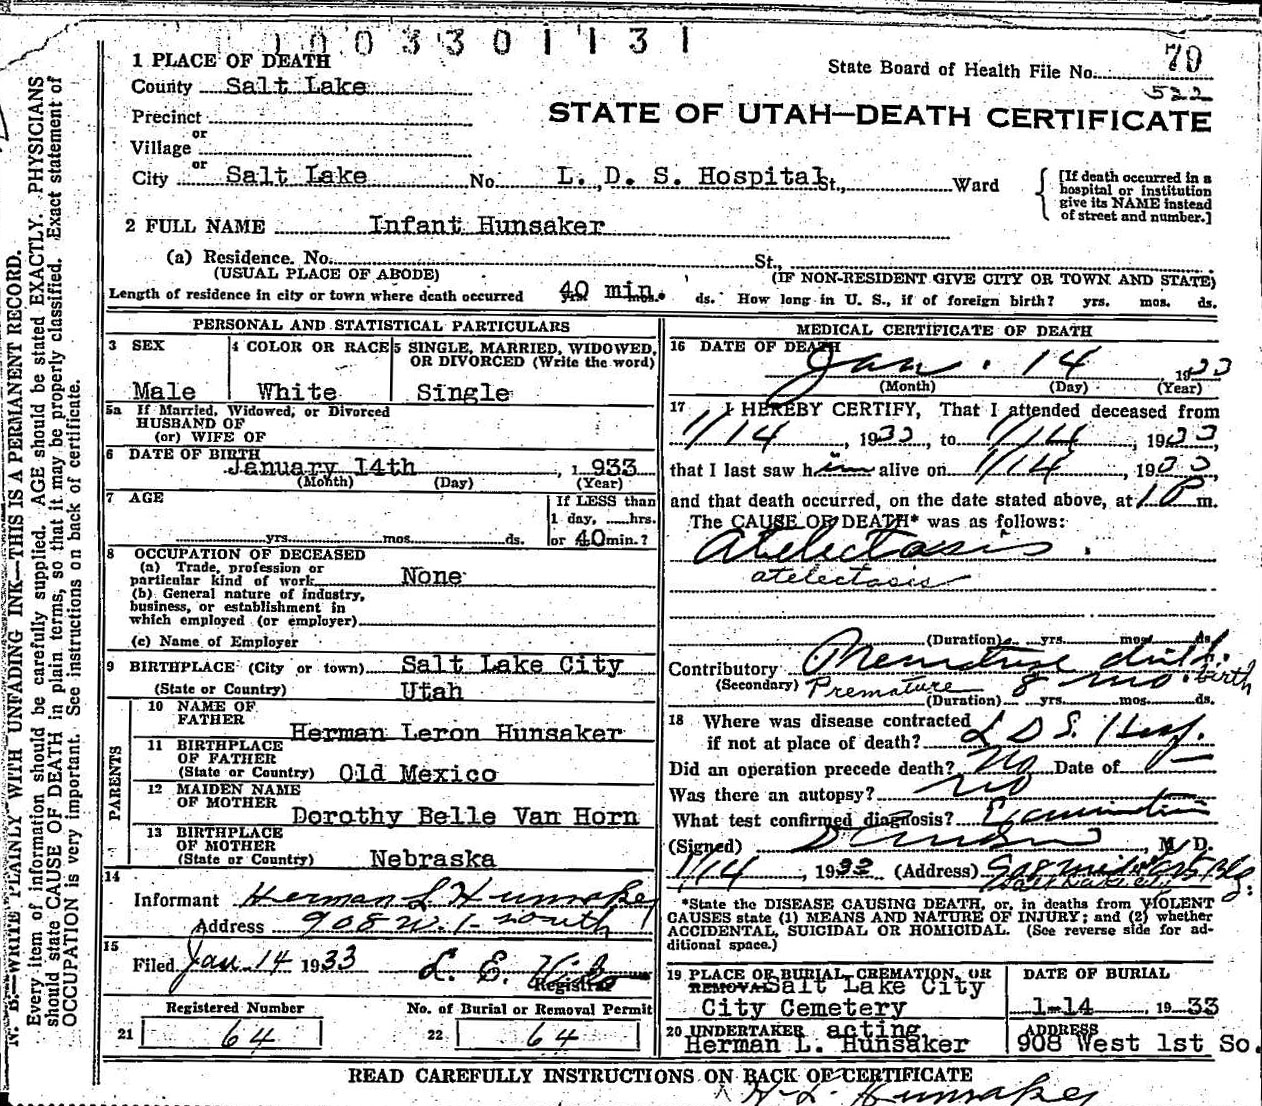 1003301131
1 PLACE OF DEATH
State Board of Health File No. 79
522
County Salt Lake
STATE OF UTAH—DEATH CERTIFICATE
Precinct
or
Village
or
City Salt Lake No. L. D. S. Hospital St., Ward
[If death occurred in a
hospital or institution
give its NAME instead
of street and number.]
2 FULL NAME Infant Hunsaker
(a) Residence. No. St.,
(USUAL PLACE OF ABODE) (IF NON-RESIDENT GIVE CITY OR TOWN AND STATE)
Length of residence in city or town where death occurred 40 min. ds. How long in U. S., if of foreign birth? yrs. mos. ds.
PERSONAL AND STATISTICAL PARTICULARS
3 SEX
Male
4 COLOR OR RACE
White
5 SINGLE, MARRIED, WIDOWED,
OR DIVORCED (Write the word)
Single
5a If Married, Widowed, or Divorced
HUSBAND OF
(or) WIFE OF
6 DATE OF BIRTH
January 14th, 1933
(Month) (Day) (Year)
7 AGE
yrs. mos. ds.
If LESS than
1 day, hrs.
or 40 min.?
8 OCCUPATION OF DECEASED
(a) Trade, profession or
particular kind of work None
(b) General nature of industry,
business, or establishment in
which employed (or employer)
(c) Name of Employer
9 BIRTHPLACE (City or town) Salt Lake City
(State or Country) Utah
PARENTS
10 NAME OF
FATHER Herman Leron Hunsaker
11 BIRTHPLACE
OF FATHER
(State or Country) Old Mexico
12 MAIDEN NAME
OF MOTHER
Dorothy Belle Van Horn
13 BIRTHPLACE
OF MOTHER
(State or Country) Nebraska
14
Informant Herman L Hunsaker
Address 908 W. 1- south
15
Filed Jan 14 1933 L. E.
Registrar
Registered Number
21 64
No. of Burial or Removal Permit
22 64
MEDICAL CERTIFICATE OF DEATH
16 DATE OF DEATH
Jan. 14 1933
(Month) (Day) (Year)
17 I HEREBY CERTIFY, That I attended deceased from
1/14, 1933, to 1/14, 1933
that I last saw him alive on 1/14, 1933
and that death occurred, on the date stated above, at 1 P m.
The CAUSE OF DEATH* was as follows:
Atelectasis.
atelectasis
(Duration) yrs. mos. ds.
Contributory Premature birth.
(Secondary) Premature 8 mo. birth
(Duration) yrs. mos. ds.
18 Where was disease contracted
if not at place of death? L D S. Hosp.
Did an operation precede death? No Date of —
Was there an autopsy? no
What test confirmed diagnosis? Examination
(Signed) M. D.
1/14, 1933 (Address) 908
Salt Lake City
*State the DISEASE CAUSING DEATH, or, in deaths from VIOLENT
CAUSES state (1) MEANS AND NATURE OF INJURY; and (2) whether
ACCIDENTAL, SUICIDAL OR HOMICIDAL. (See reverse side for ad-
ditional space.)
19 PLACE OF BURIAL, CREMATION, OR
REMOVAL Salt Lake City
City Cemetery
DATE OF BURIAL
1-14, 1933
20 UNDERTAKER acting
Herman L. Hunsaker
ADDRESS
908 West 1st So.
READ CAREFULLY INSTRUCTIONS ON BACK OF CERTIFICATE
H. L. Hunsaker
N. B.—WRITE PLAINLY WITH UNFADING INK—THIS IS A PERMANENT RECORD.
Every item of information should be carefully supplied. AGE should be stated EXACTLY. PHYSICIANS
should state CAUSE OF DEATH in plain terms, so that it may be properly classified. Exact statement of
OCCUPATION is very important. See instructions on back of certificate.